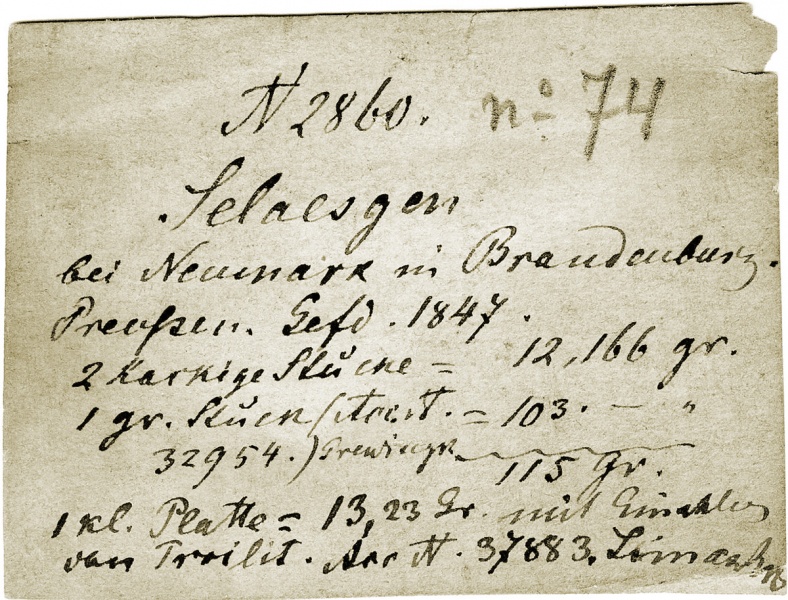 N 2860. no 74
Selaesgen
bei Neumark in Brandenburg.
Preußen. Gefd. 1847.
2 Karkige Stücke = 12,166 gr.
1 gr. Stück ( = 103. — "
32954.) Grewingk 115 gr.
1 kl. Platte = 13,23 Gr. mit
von Troilit. Acc N. 37883.